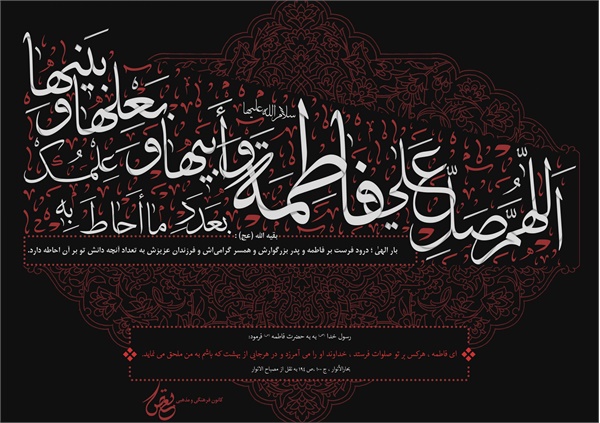 اَللّهُمَّ صَلِّ عَلی فاطِمَةَ وَ أَبیها وَ بَعلِها وَ بَنیها
سلام الله علیها
بِعَدَدِ ما أَحاطَ بِهِ عِلمُکَ
بقیه الله (عج) :
بار الهیٰ ؛ درود فرست بر فاطمه و پدر بزرگوارش و همسر گرامی‌اش و فرزندان عزیزش به تعداد آنچه دانش تو بر آن احاطه دارد.
رسول خدا به به حضرت فاطمه فرمود:
ای فاطمه ، هرکس بر تو صلوات فرستد ، خداوند او را می آمرزد و در هرجایی از بهشت که باشم به من ملحق می نماید.
بحارالأنوار ، ج ۱۰۰ ،ص ۱۹۴ به نقل از مصباح الانوار
کانون فرهنگی و مذهبی